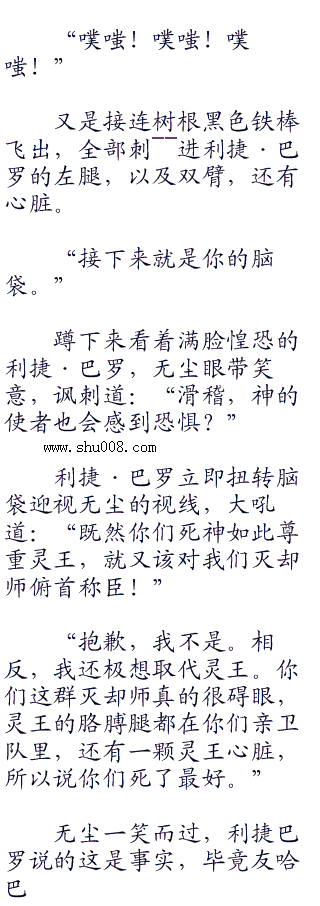 “噗嗤！噗嗤！噗
嗤！”
又是接连树根黑色铁棒
飞出，全部刺——进利捷·巴
罗的左腿，以及双臂，还有
心脏。
“接下来就是你的脑
袋。”
蹲下来看着满脸惶恐的
利捷·巴罗，无尘眼带笑
意，讽刺道：“滑稽，神的
使者也会感到恐惧？”
www.shu008.com
利捷·巴罗立即扭转脑
袋迎视无尘的视线，大吼
道：“既然你们死神如此尊
重灵王，就又该对我们灭却
师俯首称臣！”
“抱歉，我不是。相
反，我还极想取代灵王。你
们这群灭却师真的很碍眼，
灵王的胳膊腿都在你们亲卫
队里，还有一颗灵王心脏，
所以说你们死了最好。”
无尘一笑而过，利捷巴
罗说的这是事实，毕竟友哈
巴